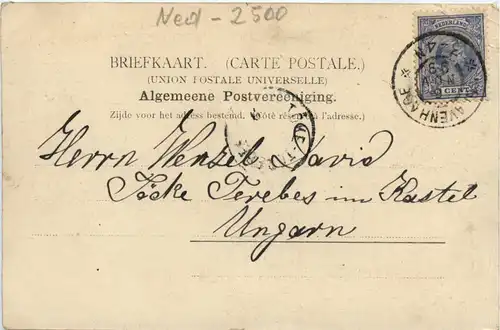 Ned - 2500
NEDERLAND
CENT
BRIEFKAART. (CARTE POSTALE.)
(UNION POSTALE UNIVERSELLE)
Algemeene Postvereeniging.
Zijde voor het adress bestemd. (Côté réservé à l'adresse.)
Herrn Wenzel David
Töcke Terebes im Kastel
Ungarn